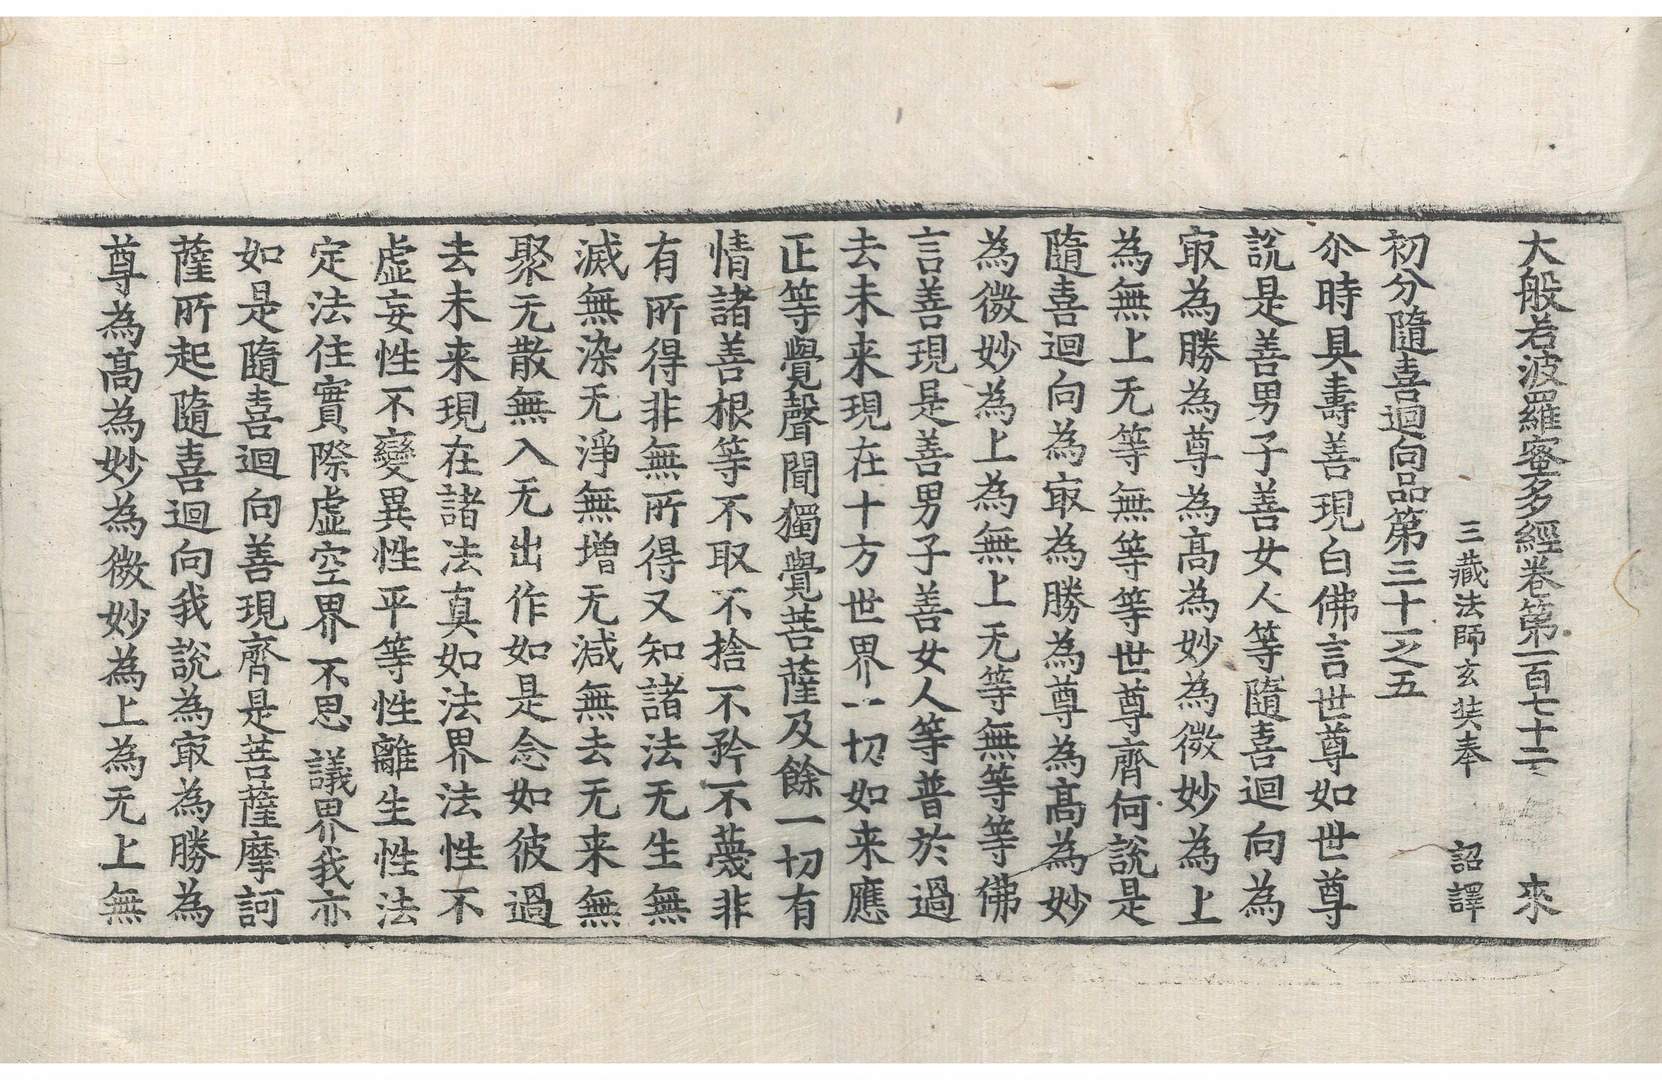 大般若波羅蜜多經卷第一百七十二 來
三藏法師玄奘奉 詔譯
初分隨喜迴向品第三十一之五
尒時具壽善現白佛言世尊如世尊
說是善男子善女人等隨喜迴向為
㝡為勝為尊為高為妙為微妙為上
為無上无等無等等世尊齊何說是
隨喜迴向為㝡為勝為尊為高為妙
為微妙為上為無上无等無等等佛
言善現是善男子善女人等普於過
去未来現在十方世界一切如来應
正等覺聲聞獨覺菩薩及餘一切有
情諸善根等不取不捨不矜不薎非
有所得非無所得又知諸法无生無
滅無染无淨無增无減無去无来無
聚无散無入无出作如是念如彼過
去未来現在諸法真如法界法性不
虛妄性不變異性平等性離生性法
定法住實際虛空界不思議界我亦
如是隨喜迴向善現齊是菩薩摩訶
薩所起隨喜迴向我說為㝡為勝為
尊為高為妙為微妙為上為无上無